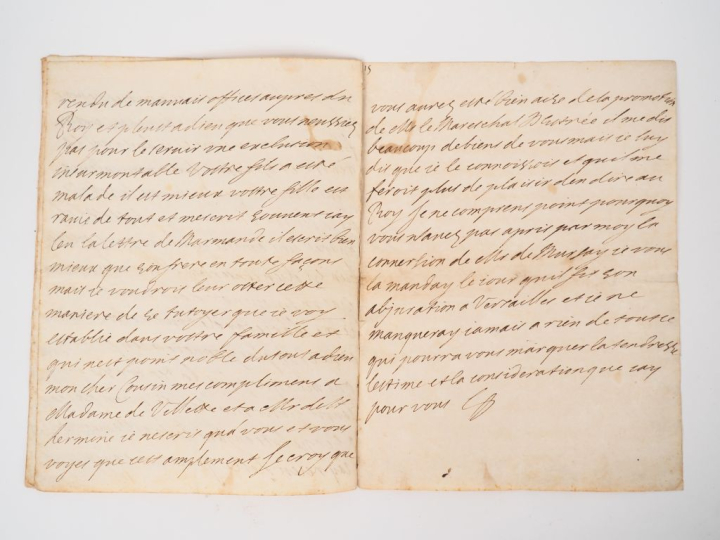 rendu de mauvais offices aupres du
Roy et pleust a dieu que vous neussiez
pas pour le servir une exclusion
insurmontable vostre fils a esté
malade il est mieux vostre fille est
ravie de tout et mescrit souvent jay
leu la lettre de Marmande il escrit bien
mieux que son frere en toute façons
mais ie voudrois leur oster cette
maniere de se tutoyer que ie voy
establie dans vostre famille et
qui nest point noble du tout adieu
mon cher Cousin mes complimens a
Madame de Villette et a Mr de St
hermine ie nescris qua vous et vous
voyes que cest amplement Je croy que
vous aurez esté bien aise de la promotion
de Mr le Mareschal Destrée il me dit
beaucoup de biens de vous mais ie luy
dis que ie le connoissois et quil me
feroit plus de plaisir den dire au
Roy Je ne comprens point pourquoy
vous navez pas apris par moy la
conversion de Mr de Mursay ie vous
la manday le iour quil fit son
abjuration a Versailles et ie ne
manqueray iamais a rien de tout ce
qui pourra vous marquer la tendresse
lestime et la consideration que jay
pour vous